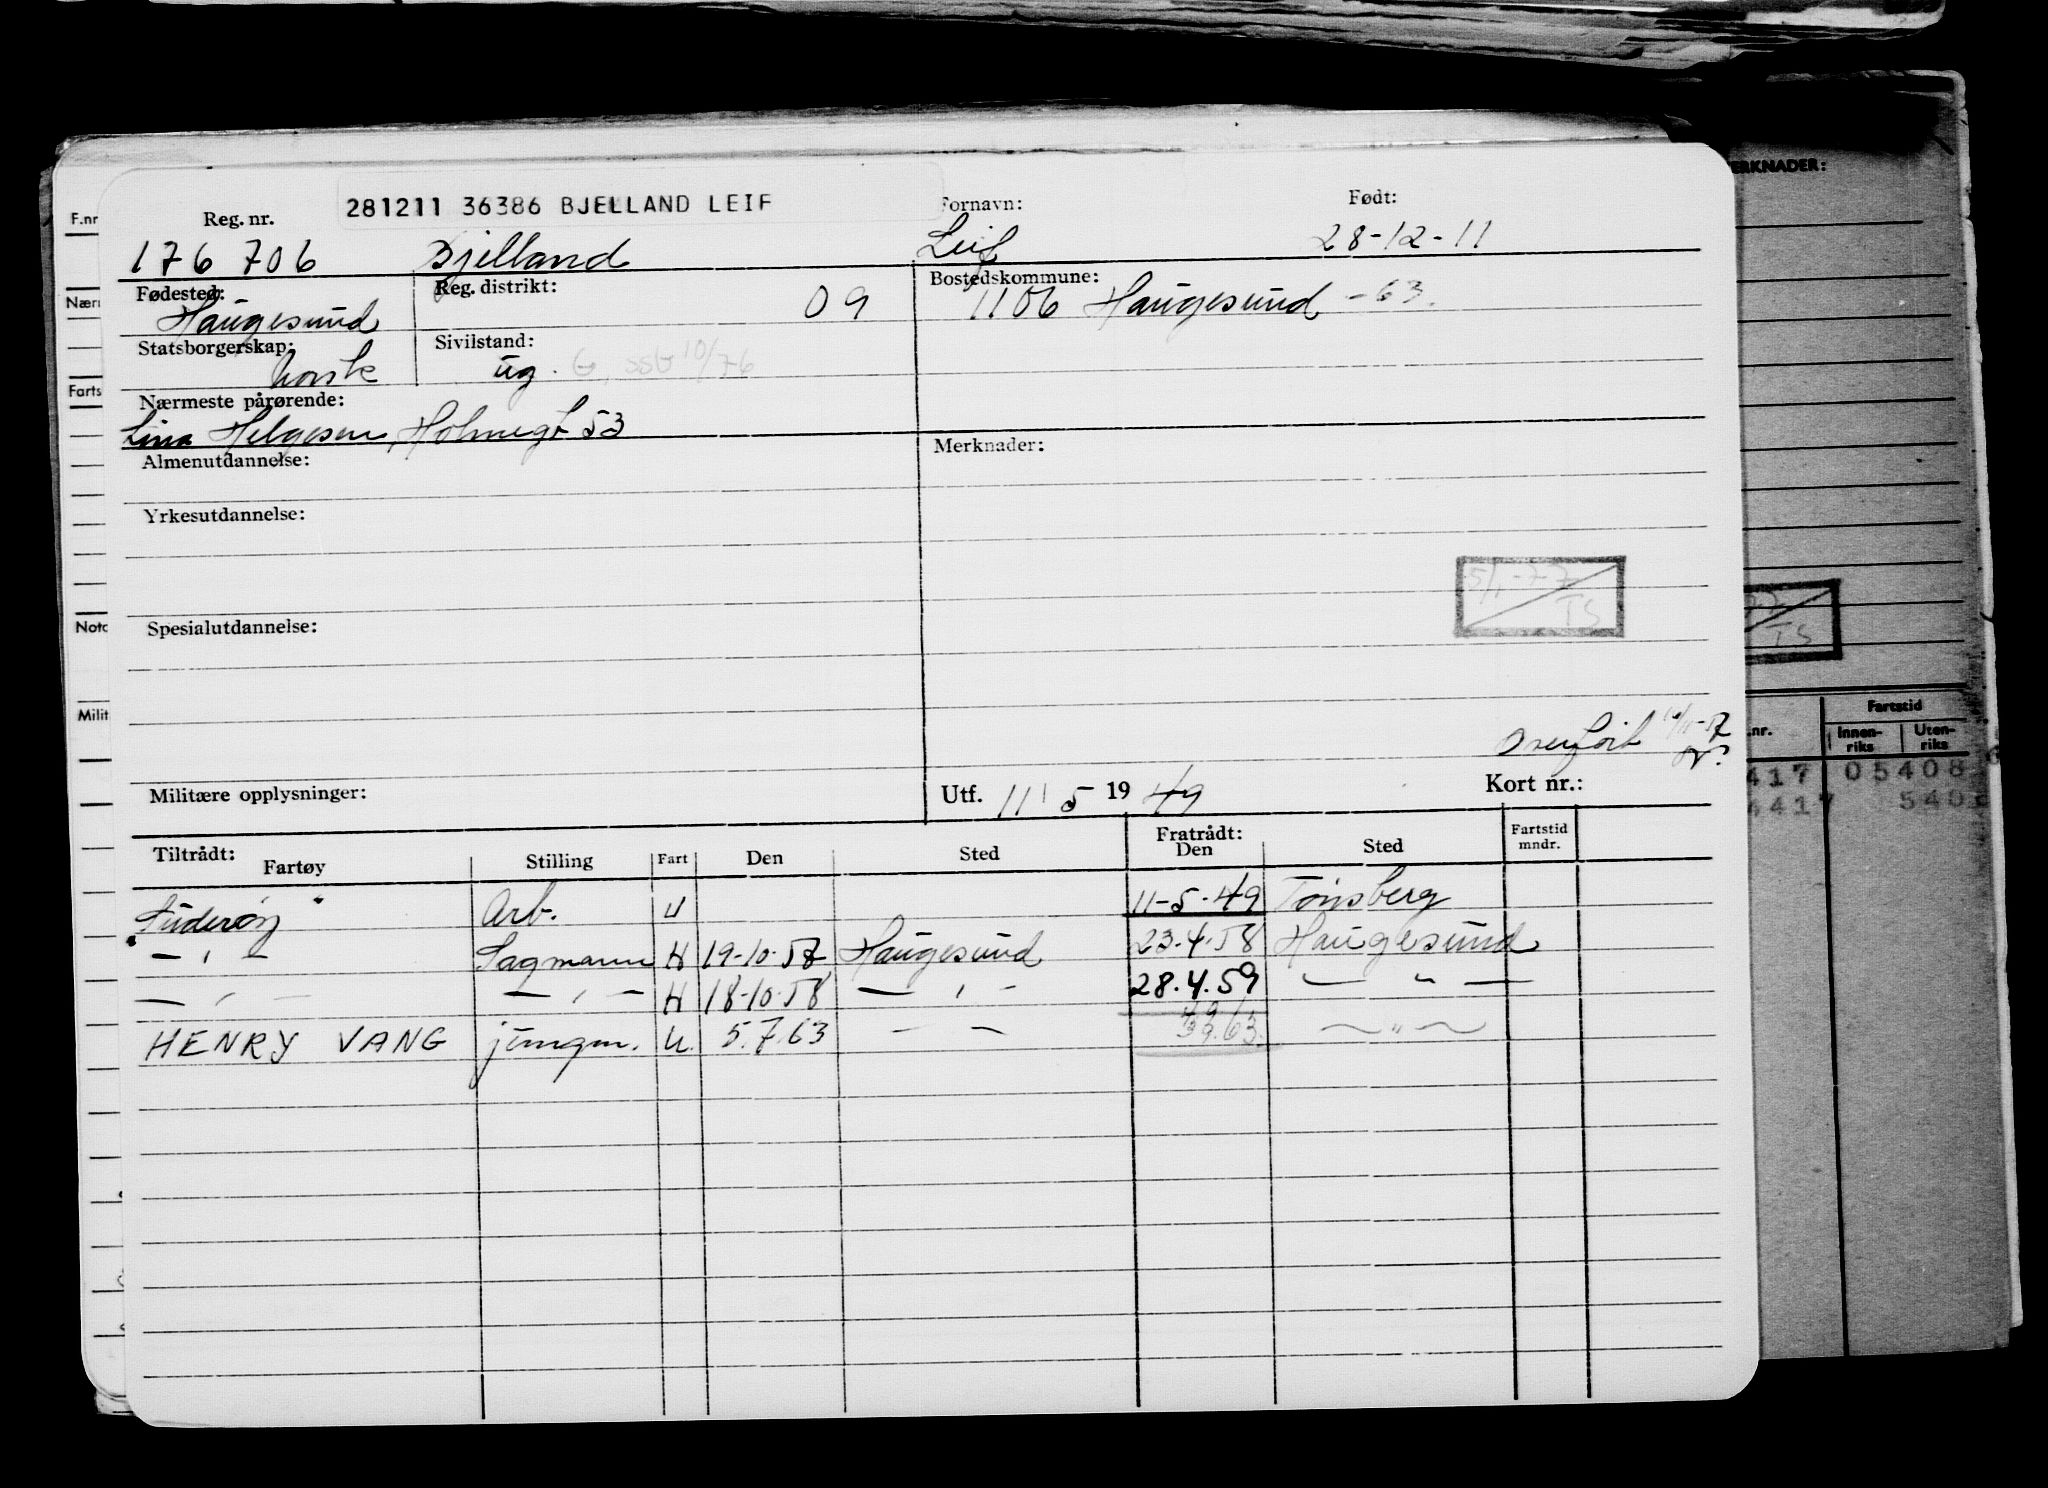 ERKNADER:
F.nr
Reg. nr. 281211 36386 BJELLAND LEIF Fornavn: Født:
176 706 Bjelland Leif 28-12-11
Nærr Fødested: Reg. distrikt: Bostedskommune:
Haugesund 09 1106 Haugesund -63.
Statsborgerskap: Sivilstand:
norsk ug. G, SSB 10/76
Farts Nærmeste pårørende:
Lina Helgesen, Holmegt 53
Almenutdannelse: Merknader:
Yrkesutdannelse:
5/1-77
TS
TS
Noto Spesialutdannelse:
Milit
Fartstid
.nr. Innen-riks Uten-riks
417 05408
4417 540
Militære opplysninger: Utf. 11/5 1949 Kort nr.:
Tiltrådt: Fratrådt: Fartstid mndr.
Fartøy Stilling Fart Den Sted Den Sted
"Suderøy" Arb. U 11-5-49 Tønsberg
— " — Sagmann H 19-10-57 Haugesund 23.4.58 Haugesund
— " — — " — H 18-10-58 — " — 28.4.59 — " —
HENRY VANG jungm. U. 5.7.63 — — — " —